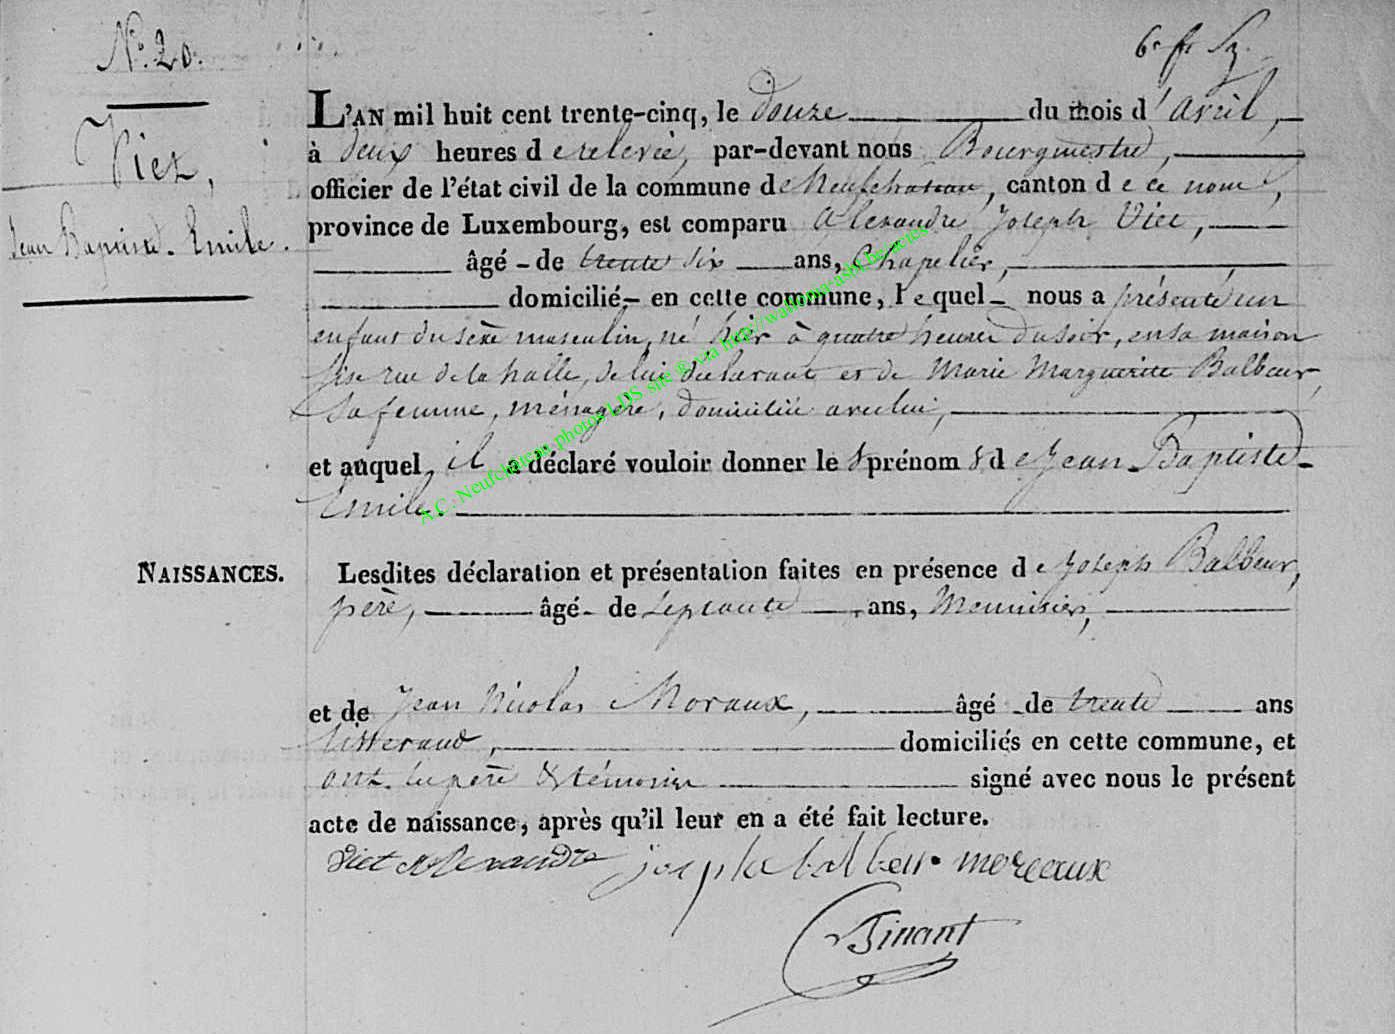 N.° 20.
Viet,
Jean Baptiste Emile.
L'AN mil huit cent trente-cinq, le douze du mois d'avril,
à deux heures de relevée, par-devant nous Bourgmestre,
officier de l'état civil de la commune de Neufchateau, canton de ce nom,
province de Luxembourg, est comparu Alexandre Joseph Viet,
âgé - de trente six ans, Chapelier,
domicilié - en cette commune, lequel - nous a présenté un
enfant du sexe masculin, né hier à quatre heures du soir, en sa maison
sise rue de la halle, de lui déclarant et de Marie Marguerite Balbeur,
sa femme, ménagère, domiciliée avec lui,
et auquel, il a déclaré vouloir donner le s prénom s de Jean-Baptiste-
Emile.
NAISSANCES.
Lesdites déclaration et présentation faites en présence de Joseph Balbeur,
père, âgé - de septante ans, Menuisier,
et de Jean Nicolas Moraux, âgé - de trente ans
tisserand, domiciliés en cette commune, et
ont, les père & témoins signé avec nous le présent
acte de naissance, après qu'il leur en a été fait lecture.
Viet Alexandre joseph balbeur moreaux
Binant
A.C. Neufchâteau photos LDS site @ via http://wallonia-asbl.be/actes